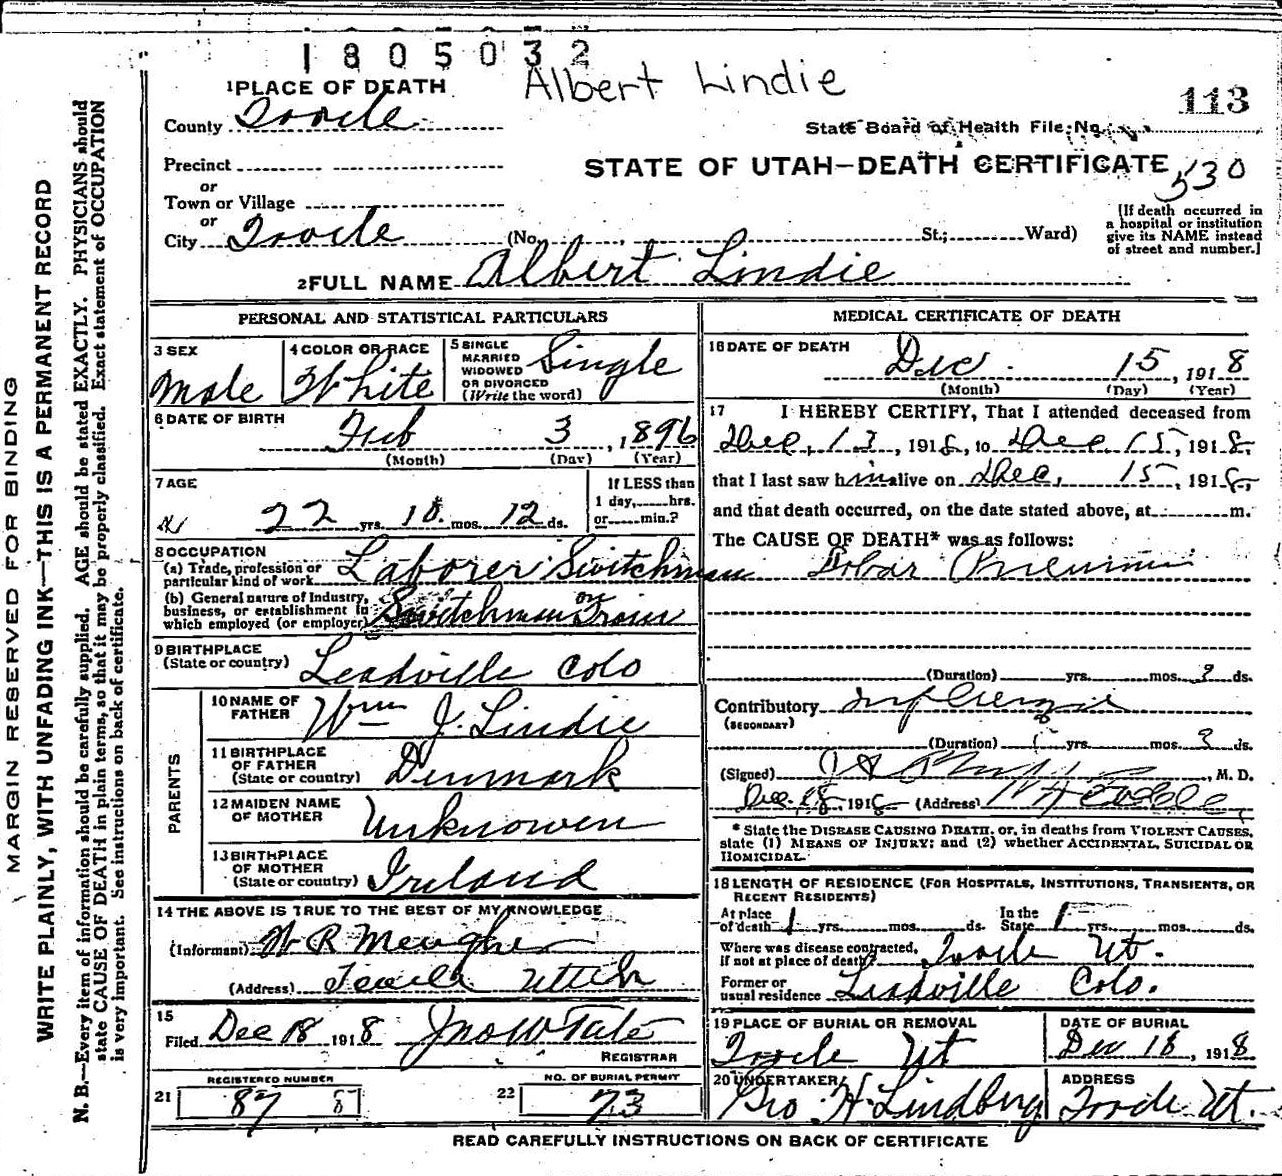 1805032
Albert Lindie
113
1 PLACE OF DEATH
County Tooele
State Board of Health File No.
Precinct
STATE OF UTAH—DEATH CERTIFICATE
530
or
Town or Village
or
City Tooele (No. , St.; Ward)
[If death occurred in a hospital or institution give its NAME instead of street and number.]
2 FULL NAME Albert Lindie
PERSONAL AND STATISTICAL PARTICULARS
3 SEX Male
4 COLOR OR RACE White
5 SINGLE MARRIED WIDOWED OR DIVORCED (Write the word) Single
6 DATE OF BIRTH Feb 3, 1896
(Month) (Day) (Year)
7 AGE
22 yrs. 10 mos. 12 ds.
If LESS than 1 day, hrs. or min.?
8 OCCUPATION
(a) Trade, profession or particular kind of work Laborer Switchman
(b) General nature of Industry, business, or establishment in which employed (or employer) Switchman on Train
9 BIRTHPLACE (State or country) Leadville Colo
PARENTS
10 NAME OF FATHER Wm J. Lindie
11 BIRTHPLACE OF FATHER (State or country) Denmark
12 MAIDEN NAME OF MOTHER Unknowen
13 BIRTHPLACE OF MOTHER (State or country) Ireland
14 THE ABOVE IS TRUE TO THE BEST OF MY KNOWLEDGE
(Informant) W R Meagher
(Address) Tooele Utah
15
Filed Dec 18 1918 Jno W Tate
REGISTRAR
REGISTERED NUMBER
21 87
NO. OF BURIAL PERMIT
22 73
MEDICAL CERTIFICATE OF DEATH
16 DATE OF DEATH Dec. 15, 1918
(Month) (Day) (Year)
17 I HEREBY CERTIFY, That I attended deceased from
Dec, 13, 1918, to Dec 15, 1918,
that I last saw him alive on Dec, 15, 1918,
and that death occurred, on the date stated above, at m.
The CAUSE OF DEATH* was as follows:
Lobar Pneumonia
(Duration) yrs. mos. ds.
Contributory Influenza
(SECONDARY)
(Duration) yrs. mos. ds.
(Signed) , M. D.
Dec. 18 1918 (Address) Tooele
* State the DISEASE CAUSING DEATH, or, in deaths from VIOLENT CAUSES, state (1) MEANS OF INJURY; and (2) whether ACCIDENTAL, SUICIDAL OR HOMICIDAL.
18 LENGTH OF RESIDENCE (FOR HOSPITALS, INSTITUTIONS, TRANSIENTS, OR RECENT RESIDENTS)
At place of death 1 yrs. mos. ds. In the State 1 yrs. mos. ds.
Where was disease contracted, if not at place of death? Tooele Ut.
Former or usual residence Leadville Colo.
19 PLACE OF BURIAL OR REMOVAL
Tooele Ut
DATE OF BURIAL
Dec 18, 1918
20 UNDERTAKER
Geo. H. Lindberg
ADDRESS
Tooele Ut.
READ CAREFULLY INSTRUCTIONS ON BACK OF CERTIFICATE
MARGIN RESERVED FOR BINDING
WRITE PLAINLY, WITH UNFADING INK—THIS IS A PERMANENT RECORD
N. B.—Every item of information should be carefully supplied. AGE should be stated EXACTLY. PHYSICIANS should
state CAUSE OF DEATH in plain terms, so that it may be properly classified. Exact statement of OCCUPATION
is very important. See instructions on back of certificate.